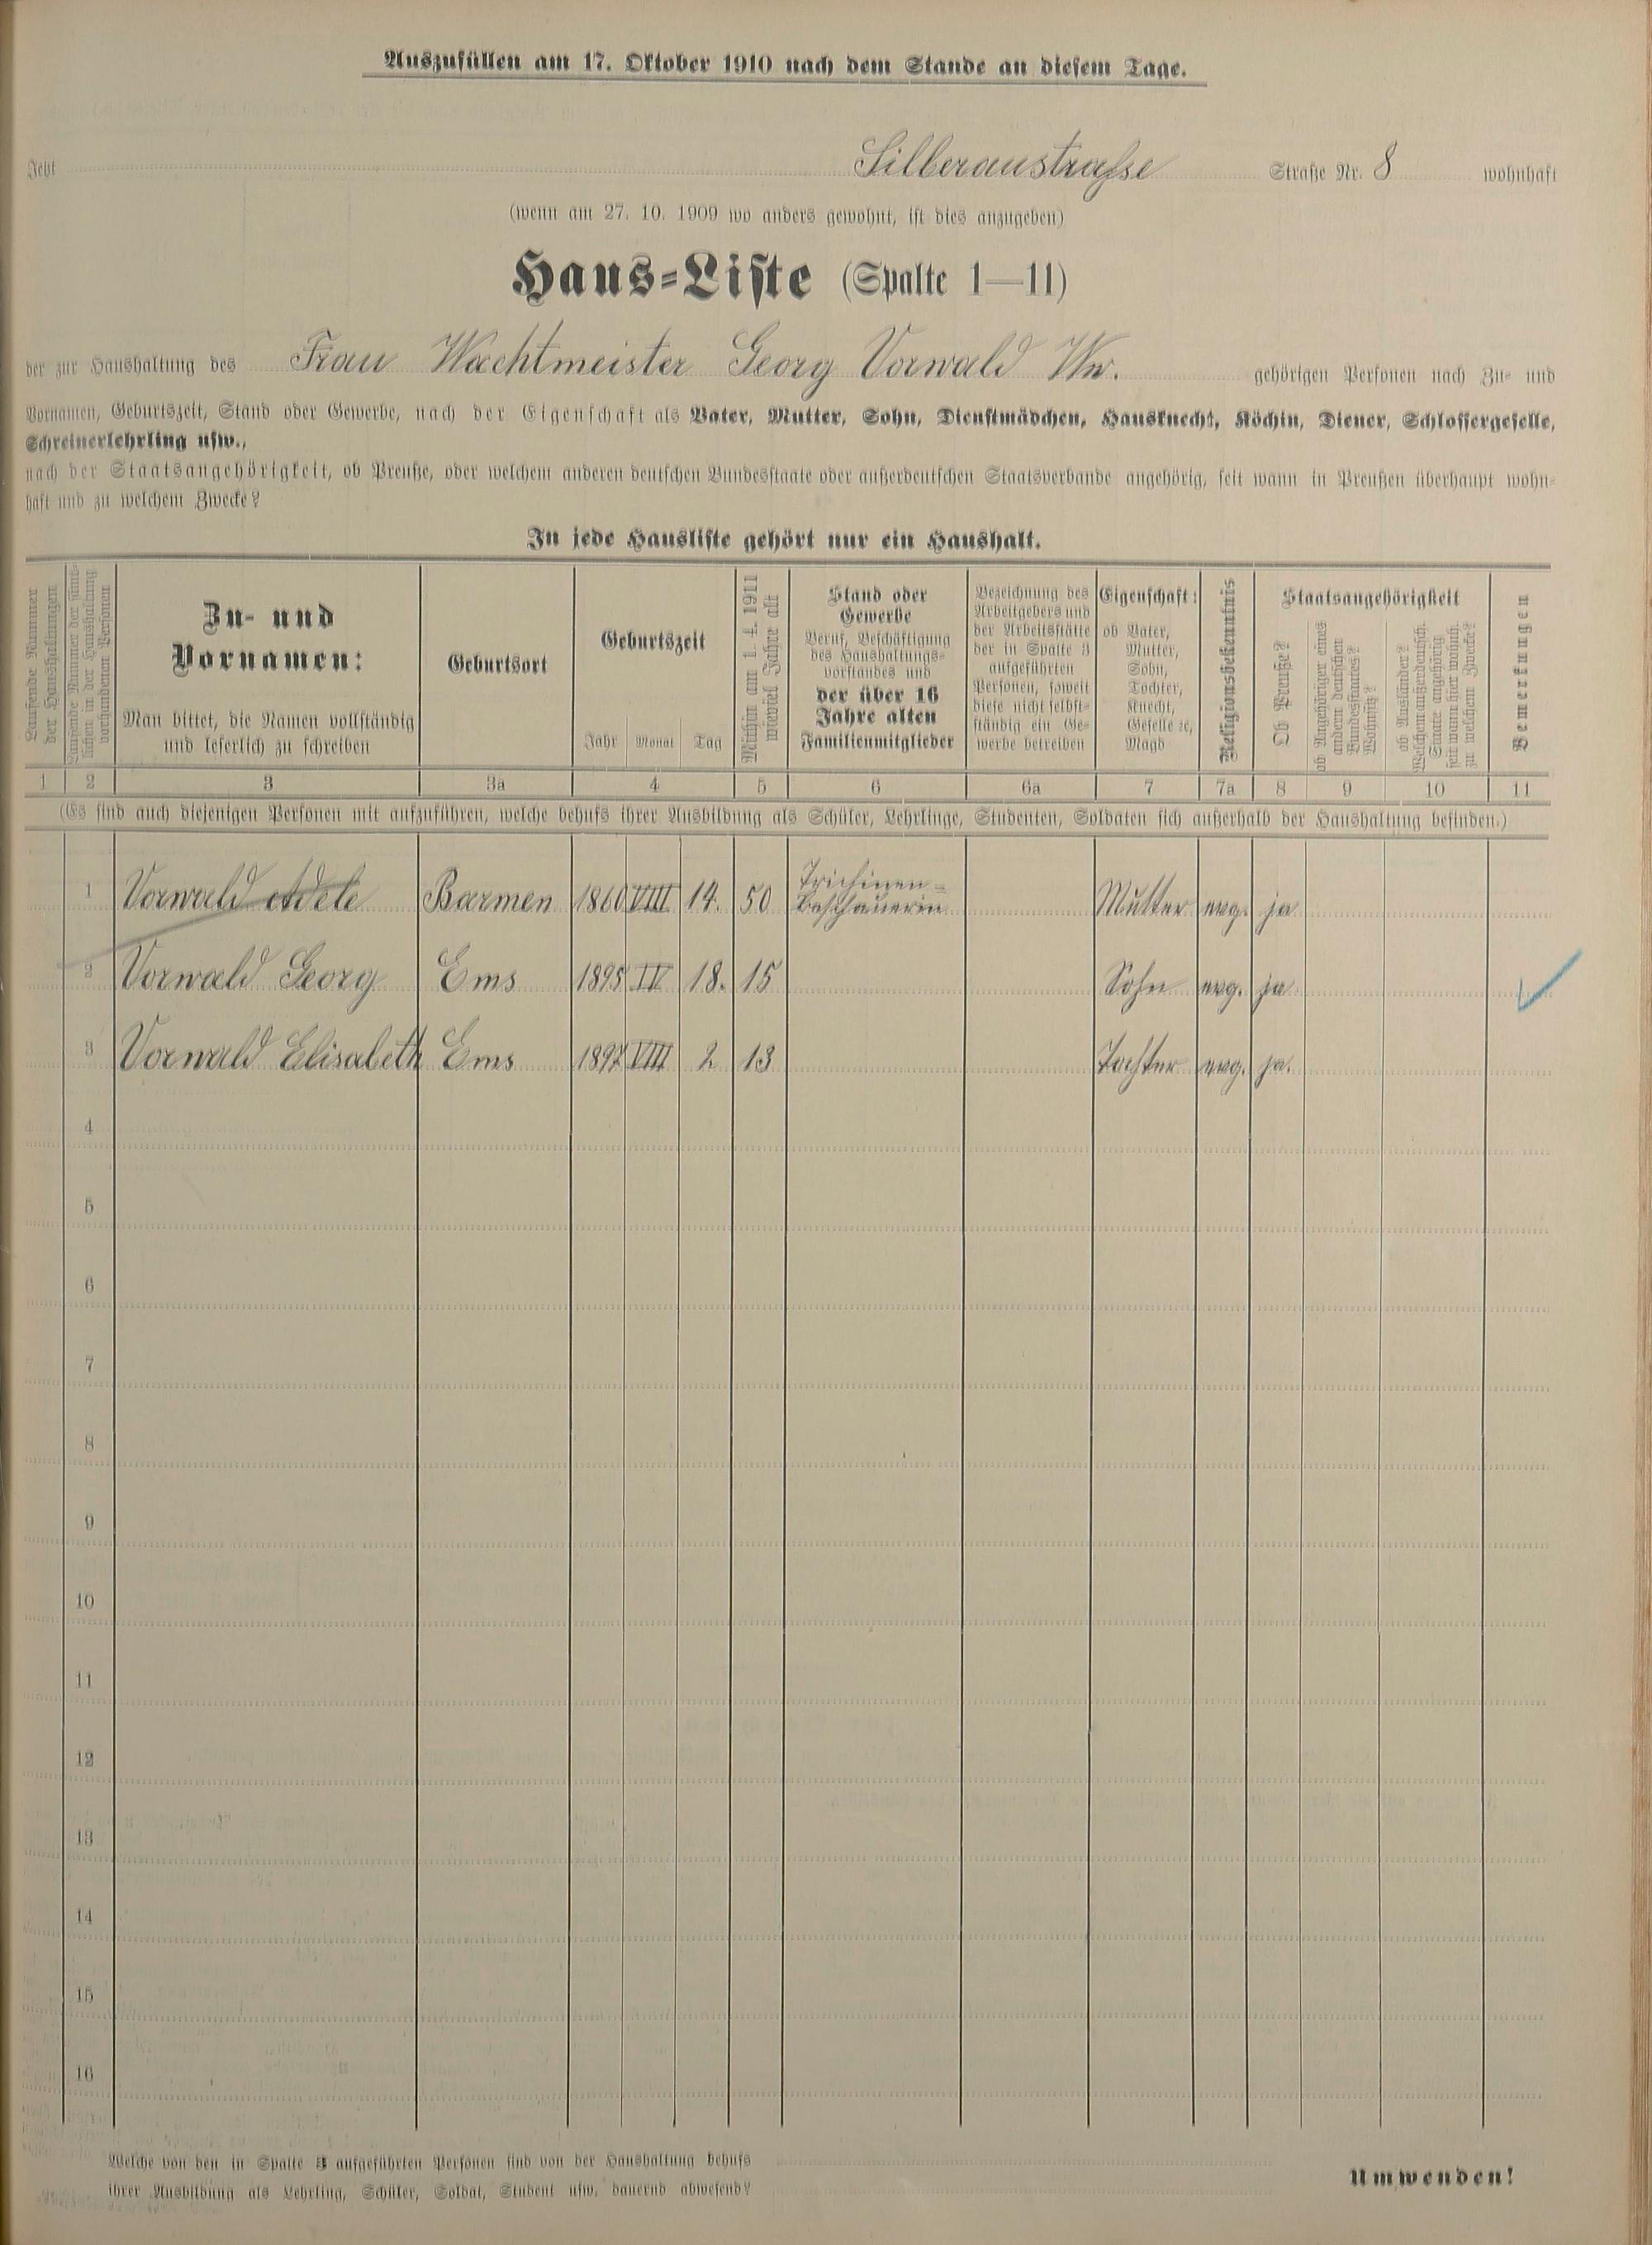 Auszufüllen am 17. Oktober 1910 nach dem Stande an diesem Tage.
Jetzt Silberaustraße Straße Nr. 8 wohnhaft
(wenn am 27. 10. 1909 wo anders gewohnt, ist dies anzugeben)
Haus-Liste (Spalte 1—11)
der zur Haushaltung des Frau Wachtmeister Georg Vorwald Ww. gehörigen Personen nach Zu- und
Vornamen, Geburtszeit, Stand oder Gewerbe, nach der Eigenschaft als Vater, Mutter, Sohn, Dienstmädchen, Hausknecht, Köchin, Diener, Schlossergeselle,
Schreinerlehrling usw.,
nach der Staatsangehörigkeit, ob Preuße, oder welchem anderen deutschen Bundesstaate oder außerdeutschen Staatsverbande angehörig, seit wann in Preußen überhaupt wohn-
haft und zu welchem Zwecke?
In jede Hausliste gehört nur ein Haushalt.
Laufende Nummer
der Haushaltungen
Laufende Nummer der sämt-
lichen in der Haushaltung
vorhandenen Personen
Zu- und
Vornamen:
Man bittet, die Namen vollständig
und leserlich zu schreiben
Geburtsort
Geburtszeit
Jahr Monat Tag
Mithin am 1. 4. 1911
wieviel Jahre alt
Stand oder
Gewerbe
Beruf, Beschäftigung
des Haushaltungs-
vorstandes und
der über 16
Jahre alten
Familienmitglieder
Bezeichnung des
Arbeitgebers und
der Arbeitsstätte
der in Spalte 3
aufgeführten
Personen, soweit
diese nicht selbst-
ständig ein Ge-
werbe betreiben
Eigenschaft:
ob Vater,
Mutter,
Sohn,
Tochter,
Knecht,
Geselle ec,
Magd
Religionsbekenntnis
Staatsangehörigkeit
Ob Preuße?
ob Angehöriger eines
andern deutschen
Bundesstaates?
Wohnsitz?
ob Ausländer?
Welchem außerdeutsch.
Staate angehörig
seit wann hier wohnh.
zu welchem Zwecke?
Bemerkungen
1 2 3 3a 4 5 6 6a 7 7a 8 9 10 11
(Es sind auch diejenigen Personen mit aufzuführen, welche behufs ihrer Ausbildung als Schüler, Lehrlinge, Studenten, Soldaten sich außerhalb der Haushaltung befinden.)
1 Vorwald Adele Barmen 1860 VIII 14. 50 Trichinen=
beschauerin Mutter evg. ja
2 Vorwald Georg Ems 1895 IV 18. 15 Sohn evg. ja
3 Vorwald Elisabeth Ems 1897 VIII 2 13 Tochter evg. ja.
4
5
6
7
8
9
10
11
12
13
14
15
16
Welche von den in Spalte 3 aufgeführten Personen sind von der Haushaltung behufs
ihrer Ausbildung als Lehrling, Schüler, Soldat, Student usw. dauernd abwesend?
Umwenden!